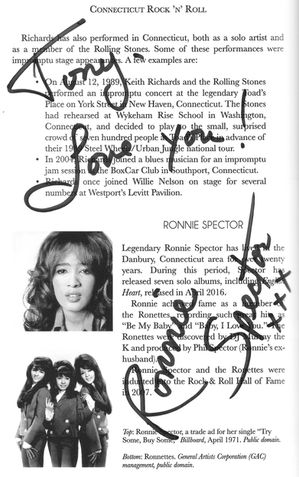 CONNECTICUT ROCK 'N' ROLL
Richards has also performed in Connecticut, both as a solo artist and
as a member of the Rolling Stones. Some of these performances were
impromptu stage appearances. A few examples are:
• On August 12, 1989, Keith Richards and the Rolling Stones
performed an impromptu concert at the legendary Toad's
Place on York Street in New Haven, Connecticut. The Stones
had rehearsed at Wykeham Rise School in Washington,
Connecticut, and decided to play the small, surprised
crowd of seven hundred people at Toad's in advance of
their 1989 Steel Wheels/Urban Jungle national tour.
• In 2004 Richards joined a blues musician for an impromptu
jam session at the BoxCar Club in Southport, Connecticut.
• Richards once joined Willie Nelson on stage for several
numbers at Westport's Levitt Pavilion.
Tony,
Love you!
RONNIE SPECTOR
Legendary Ronnie Spector has lived in the
Danbury, Connecticut area for twenty
years. During this period, Spector has
released seven solo albums, including
Heart, released in April 2016.
Ronnie achieved fame as a
the Ronettes, recording
"Be My Baby" and "Baby, I Love You." The
Ronettes were discovered by DJ Murray the
K and produced by Phil Spector (Ronnie's ex-
husband).
Spector and the Ronettes were
inducted into the Rock & Roll Hall of Fame
in 2007.
Ronnie Spector
xxx
Top: Ronnie Spector, a trade ad for her single "Try
Some, Buy Some," Billboard, April 1971. Public domain.
Bottom: Ronnettes. General Artists Corporation (GAC)
management, public domain.